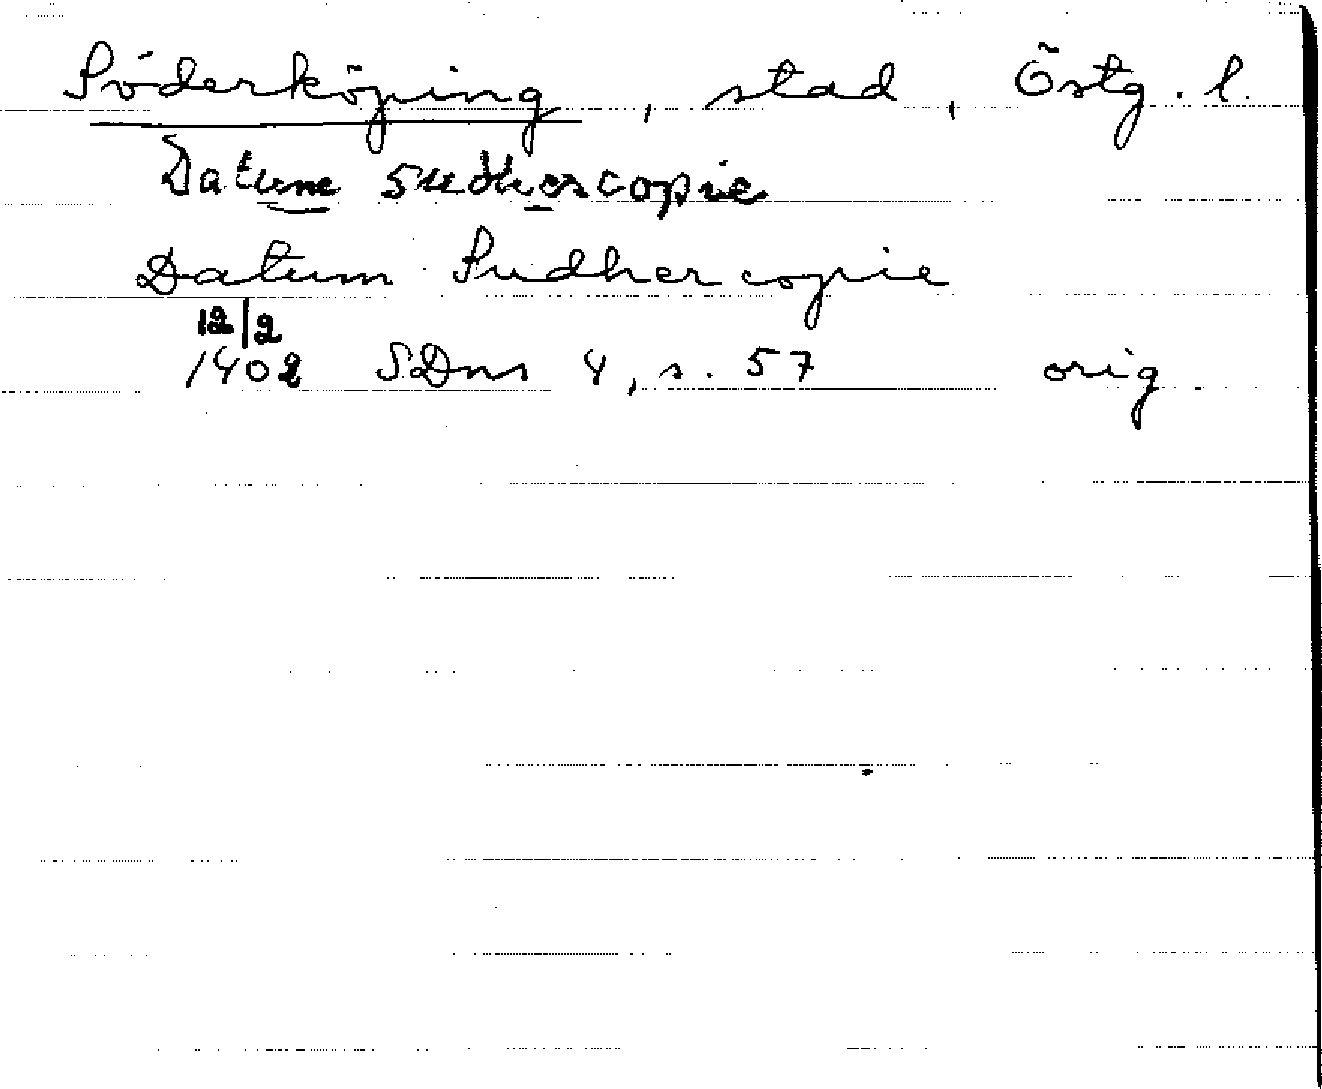 Söderköping, stad, Östg. l.
Datum Sudherscopie
Datum Sudhercopie
12/2
1402 SDns 4, s. 57 orig